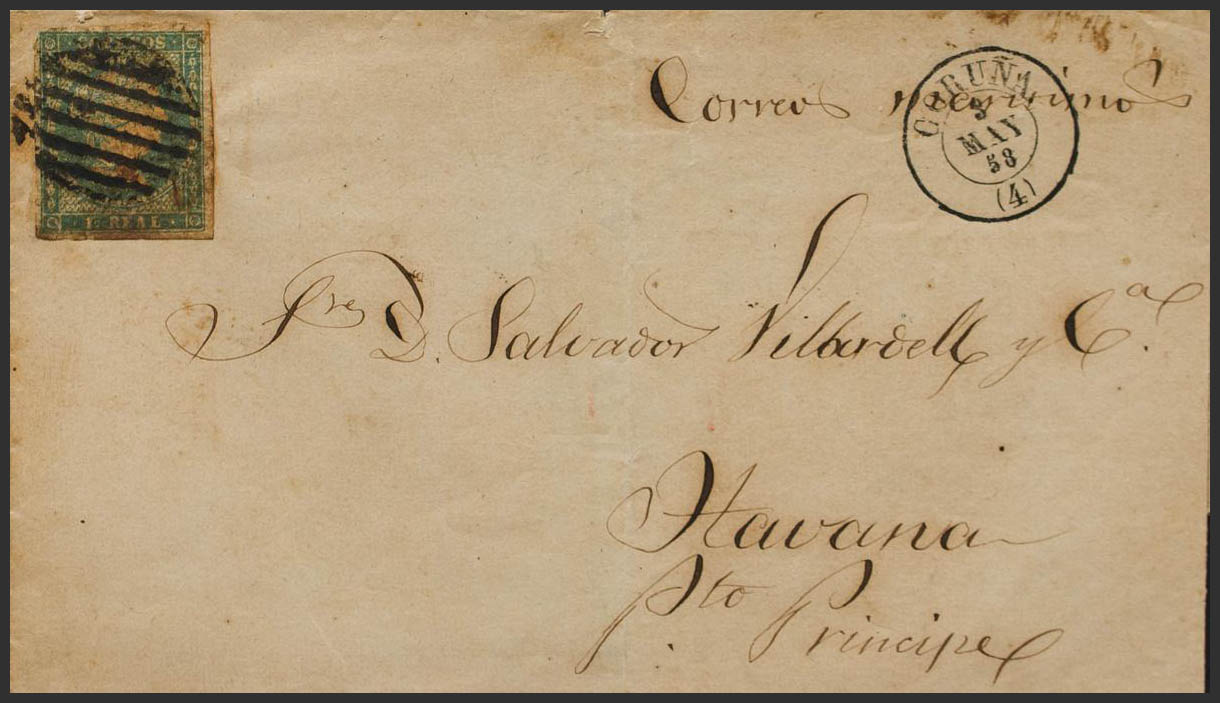 CORREOS
1 REAL
Correos marisimos
CORUÑA
3
MAY
58
(4)
Sre D. Salvador Vilardell y Cª.
Havana
Pto Principe